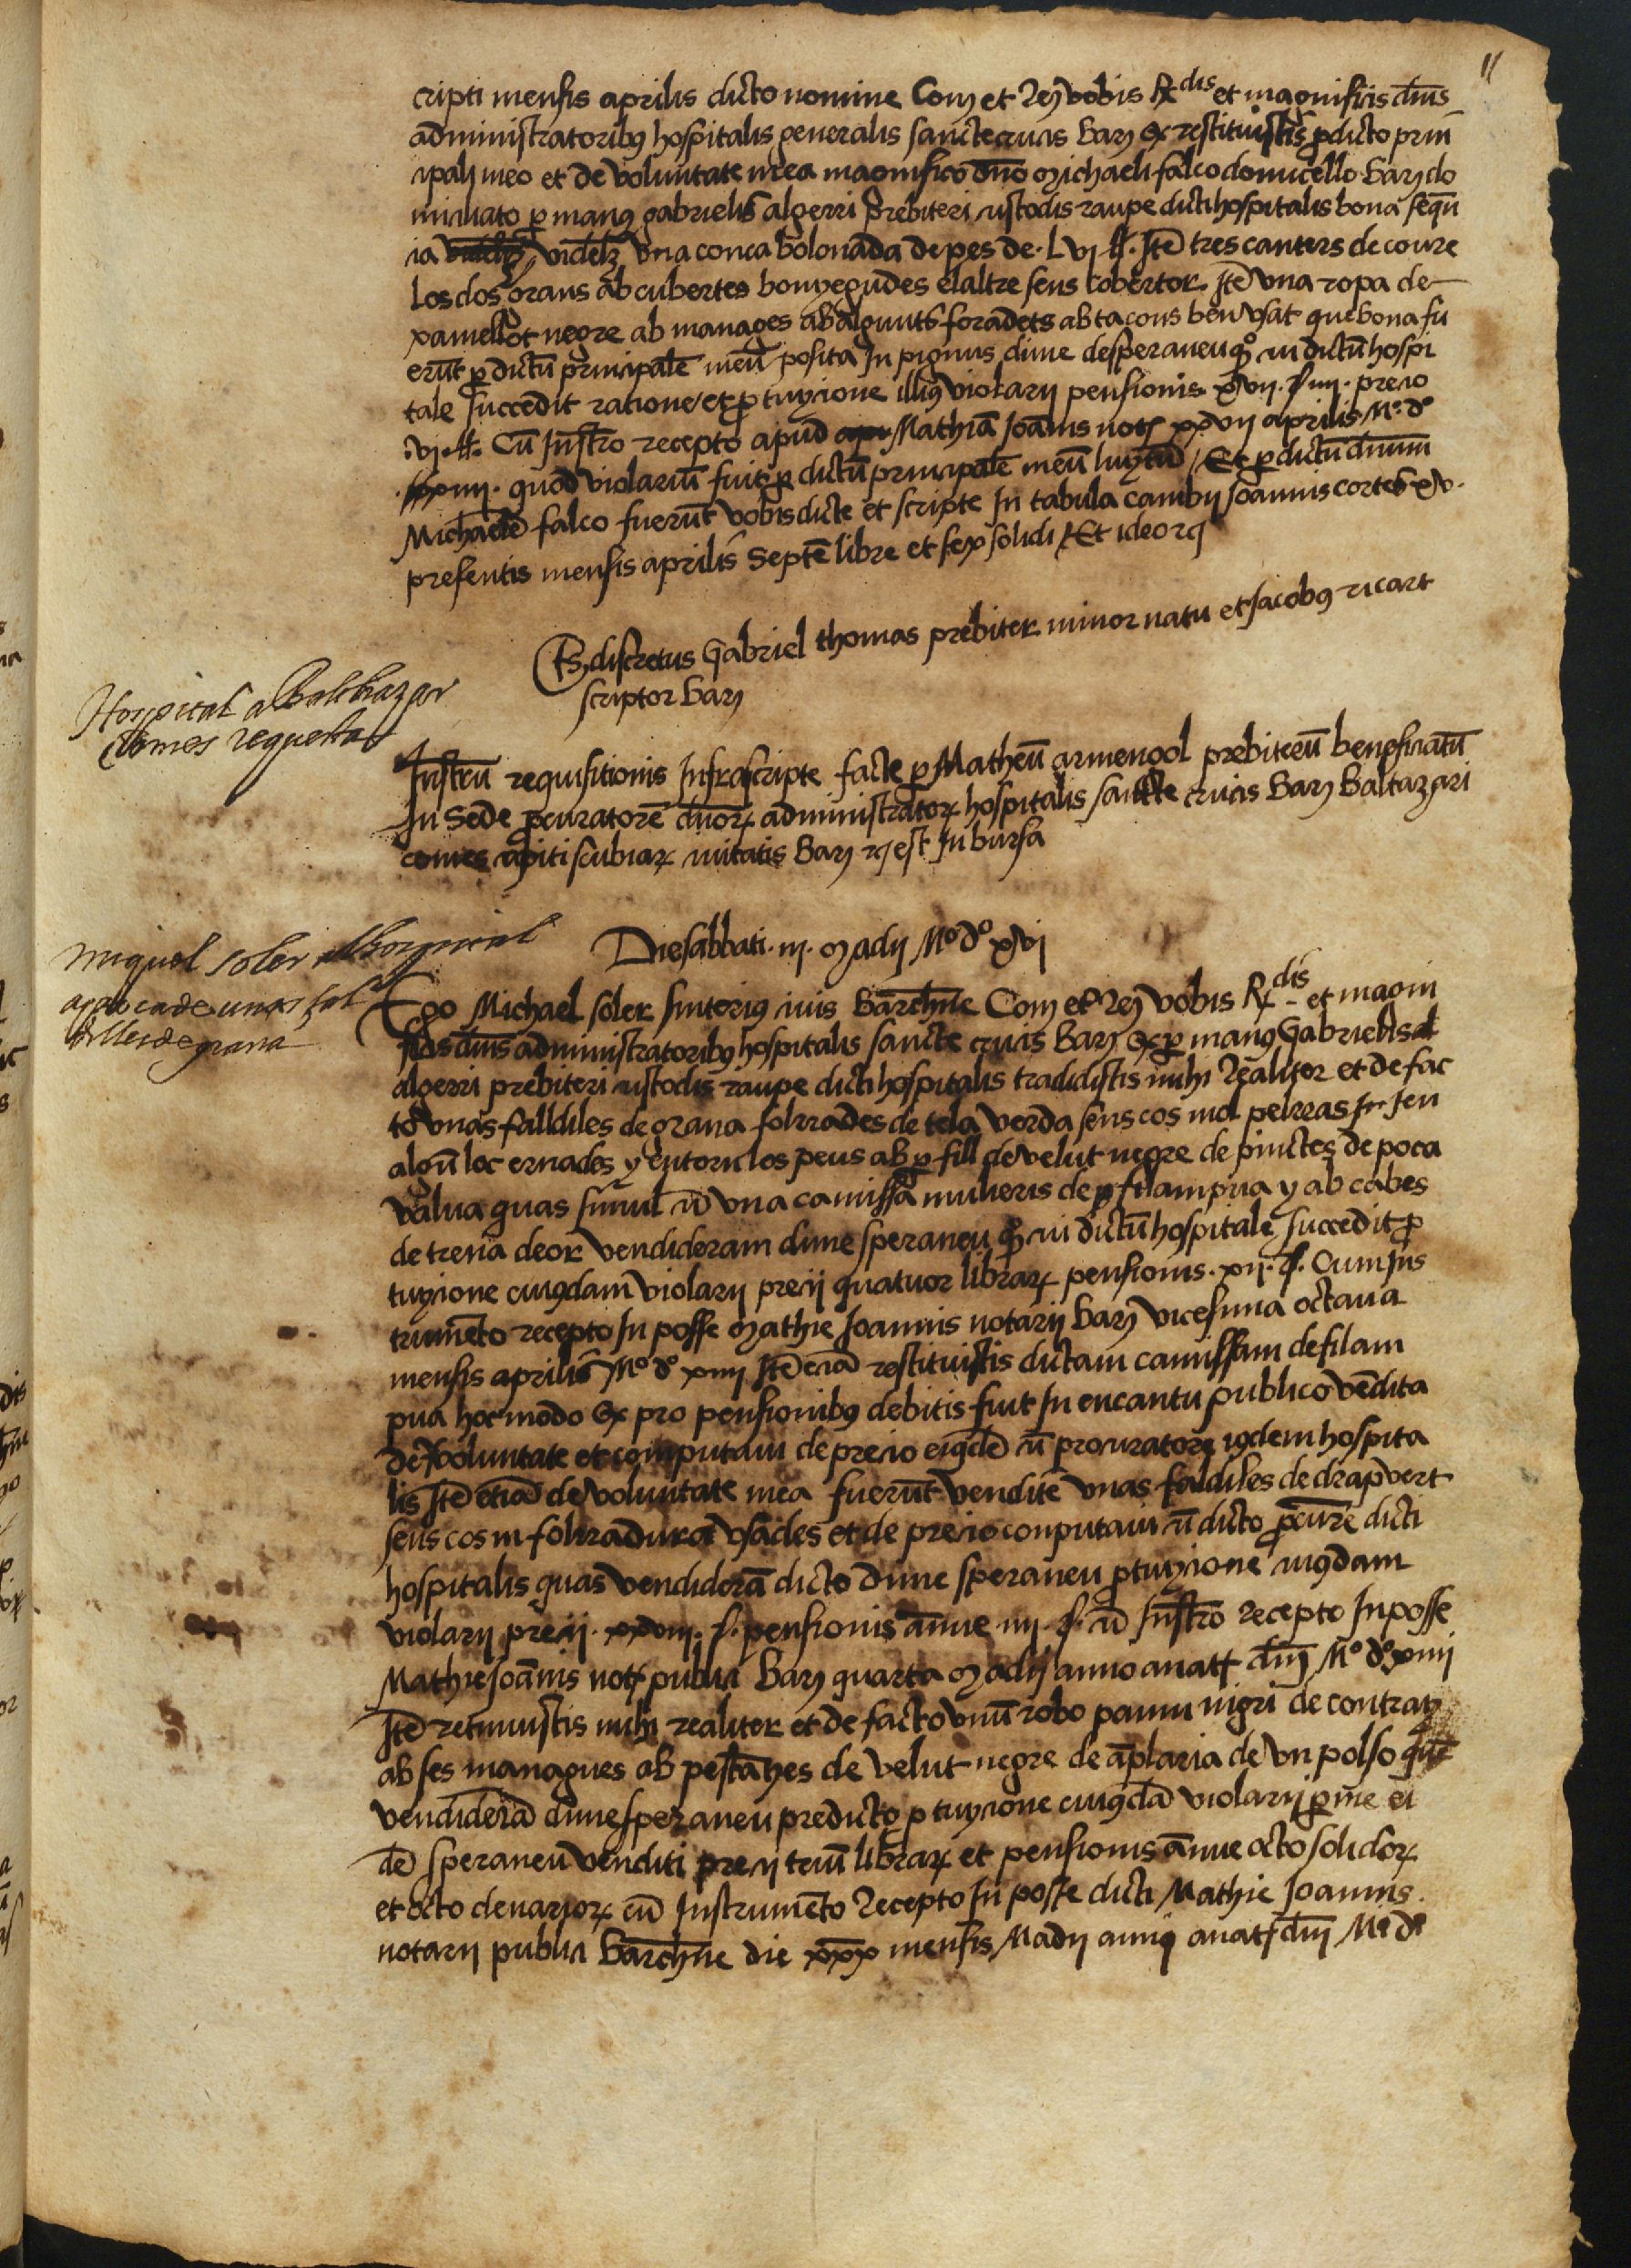 11
cripti mensis aprilis dicto nomine Conf et Recog vobis Rdis et magnificis dnis
administratoribus hospitalis generalis sancte crucis barn quod restituistis pdicto prin
cipali meo et de voluntate mea magnifico dno Michaeli falco domicello barn do
miciliato p manus gabrielis algerri prebiteri custodis raupe dicti hospitalis bona sequen
cia videlz vna conca bolonada de pes de . Lvj ll. Ite tres canters de coure
Los dos grans ab cubertes bonyegudes elaltre sens cobertor. Ite vna ropa de
xamellot negre ab manages ab alguns foradets ab tacons ben vsat que bona fu
erut p dictu principale meu posita In pignus dnne desperaneu cui dictu hospi
tale succedit ratione et p tuycione illius violarij pensionis xvij. s iiij. precio
vj. ll. Cu Instro recepto apud Mathia Joanis not xxvij aprilis Mº dº
xiiij. quod violariu fuit p dictu principale meu luytu / Et p dictu dnum
Michaele falco fuerut vobis dicte et scripte In tabula cambij Joannis cortes xv.
presentis mensis aprilis Septe libre et sex solidi / Et ideo rej
Ts discretus Gabriel thomas prebiter minor natu et Jacobus ricart
scriptor barn
Hospital a Balthazar
Comes requesta
Instru requisitionis Infrascripte facte p Matheu armengol prebiteru beneficiatu
In Sede pcuratore dnor administrator hospitalis sancte crucis barn Baltazari
comes capiti scubiar civitatis barn rej est In bursa
Miquel soler al hospital
apoca de unas fal
dilles de grana
Die sabbati . iij. Madij Mº dº xvj
Ego Michael soler sutorius civis Barchne Conf et Recog vobis Rdis et magni
ficis dnis administratoribus hospitalis sancte crucis barn quod p manus Gabrielis
algerri prebiteri custodis raupe dicti hospitalis tradidistis michi realiter et de fac
to vnas falldiles de grana folrrades de tela verda sens cos
algu loc ernades y entorn los peus ab pfill de velut negre de pinctes de poca
valua quas simul cu vna camissa mulieris de filampua y ab cabes
de trena deor vendideram dnne speraneu cui dictu hospitale succedit p
tuycione cuiusdam violarij precij quatuor librar pensionis . xij. s. Cum Ins
trumeto recepto In posse Mathie Joannis notarij barn vicesima octaua
mensis aprilis Mº dº xiiij Ite ecia restituistis dictam camissam de filam
pua hoc modo quod pro pensionibus debitis fuit In encantu publico vedita
de voluntate et computaui de precio eiusde cu procuratore eiusdem hospita
lis Ite etia de voluntate mea fuerut vendite vnas faldiles de drap vert
sens cos ni folrradura vsades et de precio conputaui cu dicto pcure dicti
hospitalis quas vendidera dicto dnne speraneu p tuycione cuiusdam
violarij precij . xxviij. s. pensionis anue iiij s. cu Instro recepto In posse
Mathie Joanis not publici barn quarta Madij anno anat dnj Mº dº xiiij
Ite retinuistis michi realiter et de facto vnu robo panni nigri de contray
ab ses manegues ab pestanyes de velut negre de aplaria de vn polso
vendidera dnne speraneu predicto p tuycione cuiusda violarij p me ei
de speraneu venditi precij triu librar et pensionis anue octo solidor
et octo denarior cu Instrumeto recepto In posse dicti Mathie Joannis
notarij publici Barchne die xxx mensis Madij anni anat dnj Mº dº